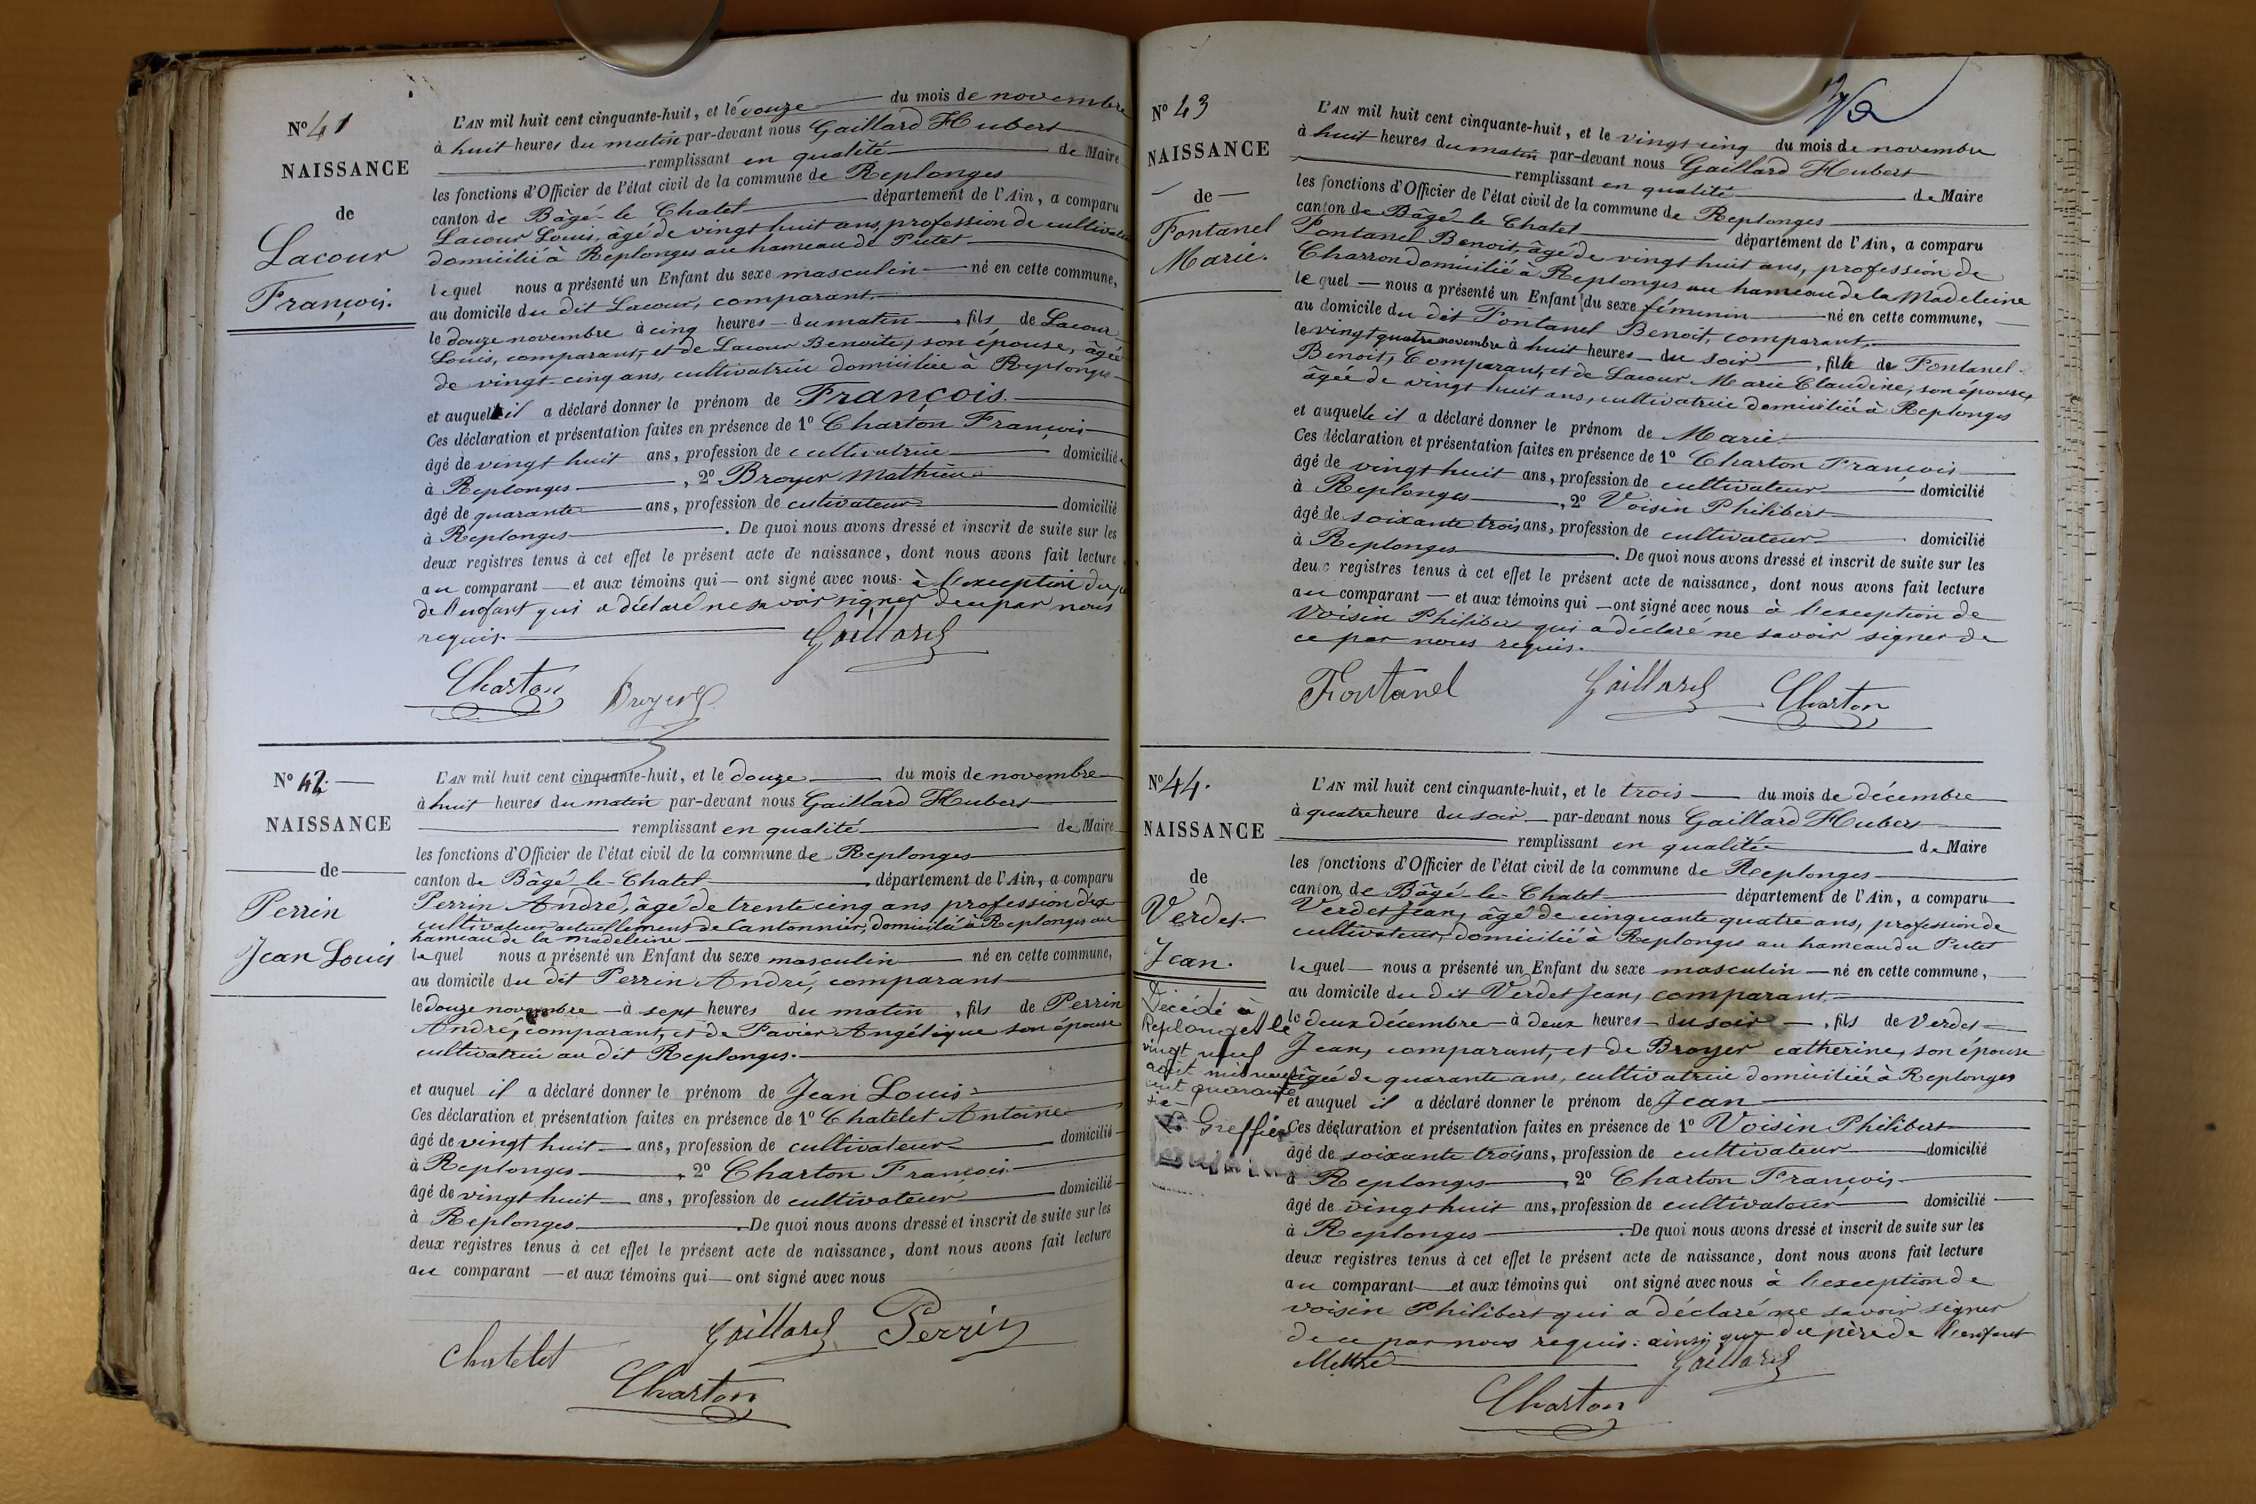 N° 41
NAISSANCE
de
Lacour
François.
L'AN mil huit cent cinquante-huit, et le douze du mois de novembre
à huit heures du matin par-devant nous Gaillard Hubert
remplissant en qualité de Maire
les fonctions d'Officier de l'état civil de la commune de Replonges
canton de Bâgé-le Chatel département de l'Ain, a comparu
Lacour Louis, âgé de vingt huit ans, profession de cultivateur
domicilié à Replonges au hameau de Putet.
lequel nous a présenté un Enfant du sexe masculin né en cette commune,
au domicile du dit Lacour, comparant.
le douze novembre à cinq heures du matin, fils de Lacour
Louis, comparant, et de Lacour Benoite, son épouse, âgée
de vingt-cinq ans, cultivatrice domiciliée à Replonges
et auquel il a déclaré donner le prénom de François.
Ces déclaration et présentation faites en présence de 1° Charton François
âgé de vingt huit ans, profession de cultivatrice domicilié
à Replonges, 2° Broyer Mathieu
âgé de quarante ans, profession de cultivateur domicilié
à Replonges. De quoi nous avons dressé et inscrit de suite sur les
deux registres tenus à cet effet le présent acte de naissance, dont nous avons fait lecture
au comparant et aux témoins qui ont signé avec nous à l'exception du
de l'enfant qui a déclaré ne savoir signer de ce par nous
requis.
Gaillard
Charton Broyer
N° 42.
NAISSANCE
de
Perrin
Jean Louis
L'AN mil huit cent cinquante-huit, et le douze du mois de novembre
à huit heures du matin par-devant nous Gaillard Hubert
remplissant en qualité de Maire
les fonctions d'Officier de l'état civil de la commune de Replonges
canton de Bâgé-le-Chatel département de l'Ain, a comparu
Perrin André, âgé de trente cinq ans profession de
cultivateur actuellement de Cantonnier, domicilié à Replonges au
hameau de la Madeleine
lequel nous a présenté un Enfant du sexe masculin né en cette commune,
au domicile du dit Perrin André, comparant
le douze novembre à sept heures du matin, fils de Perrin
André, comparant, et de Favier Angélique son épouse
cultivatrice au dit Replonges.
et auquel il a déclaré donner le prénom de Jean Louis
Ces déclaration et présentation faites en présence de 1° Chatelet Antoine
âgé de vingt huit ans, profession de cultivateur domicilié
à Replonges, 2° Charton François
âgé de vingt huit ans, profession de cultivateur domicilié
à Replonges. De quoi nous avons dressé et inscrit de suite sur les
deux registres tenus à cet effet le présent acte de naissance, dont nous avons fait lecture
au comparant et aux témoins qui ont signé avec nous
Chatelet Gaillard Perrin
Charton
N° 43
NAISSANCE
de
Fontanel
Marie.
L'AN mil huit cent cinquante-huit, et le vingt cinq du mois de novembre
à huit heures du matin par-devant nous Gaillard Hubert
remplissant en qualité de Maire
les fonctions d'Officier de l'état civil de la commune de Replonges
canton de Bâgé-le Chatel département de l'Ain, a comparu
Fontanel Benoit, âgé de vingt huit ans, profession de
Charron domicilié à Replonges au hameau de la Madeleine
lequel nous a présenté un Enfant du sexe féminin né en cette commune,
au domicile du dit Fontanel Benoit, comparant,
le vingt quatre novembre à huit heures du soir, fille de Fontanel
Benoit, Comparant, et de Lacour Marie Claudine, son épouse,
âgée de vingt huit ans, cultivatrice domiciliée à Replonges
et auquelle il a déclaré donner le prénom de Marie
Ces déclaration et présentation faites en présence de 1° Charton François
âgé de vingt huit ans, profession de cultivateur domicilié
à Replonges, 2° Voisin Philibert
âgé de soixante trois ans, profession de cultivateur domicilié
à Replonges. De quoi nous avons dressé et inscrit de suite sur les
deux registres tenus à cet effet le présent acte de naissance, dont nous avons fait lecture
au comparant et aux témoins qui ont signé avec nous à l'exception de
Voisin Philiber qui a déclaré ne savoir signer de
ce par nous requis.
Fontanel Gaillard Charton
N° 44.
NAISSANCE
de
Verdet
Jean.
Décédé à
Replonges le
vingt neuf
août mil neuf
cent quarante
Le Greffier
L'AN mil huit cent cinquante-huit, et le trois du mois de décembre
à quatre heure du soir par-devant nous Gaillard Hubert
remplissant en qualité de Maire
les fonctions d'Officier de l'état civil de la commune de Replonges
canton de Bâgé-le-Chatel département de l'Ain, a comparu
Verdet Jean, âgé de cinquante quatre ans, profession de
cultivateur, domicilié à Replonges au hameau du Putet
lequel nous a présenté un Enfant du sexe masculin né en cette commune,
au domicile du dit Verdet Jean, comparant.
le deux décembre à deux heures du soir, fils de Verdet
Jean, comparant, et de Broyer catherine, son épouse
âgée de quarante ans, cultivatrice domiciliée à Replonges
et auquel il a déclaré donner le prénom de Jean
Ces déclaration et présentation faites en présence de 1° Voisin Philibert
âgé de soixante trois ans, profession de cultivateur domicilié
à Replonges, 2° Charton François
âgé de vingt huit ans, profession de cultivateur domicilié
à Replonges. De quoi nous avons dressé et inscrit de suite sur les
deux registres tenus à cet effet le présent acte de naissance, dont nous avons fait lecture
au comparant et aux témoins qui ont signé avec nous à l'exception de
voisin Philibert qui a déclaré ne savoir signer
de ce par nous requis: ainsi que du père de l'enfant
Gaillard
Charton